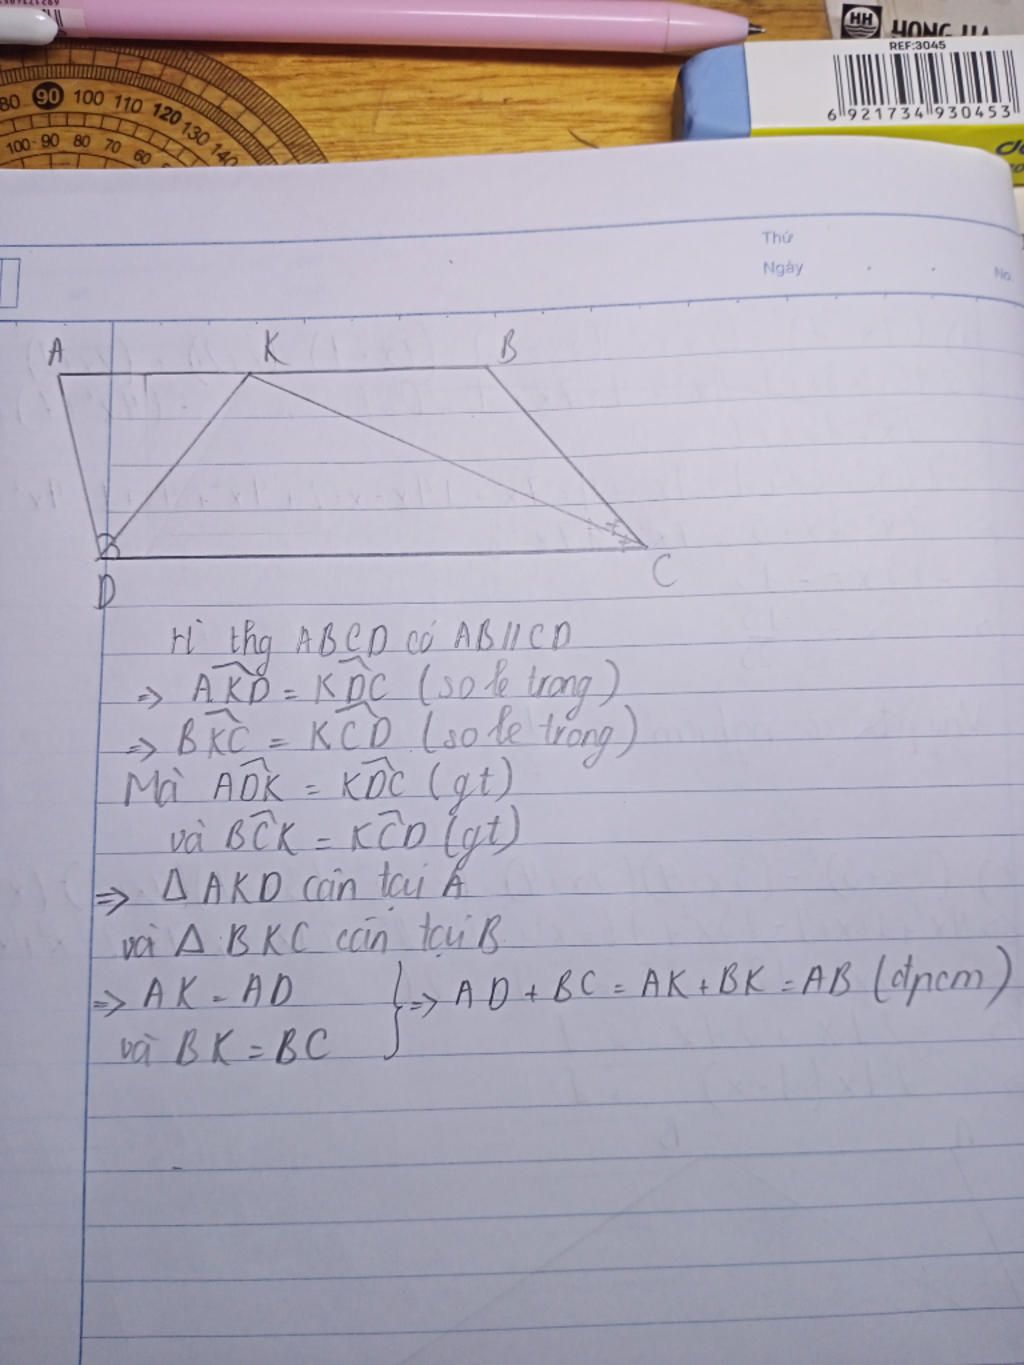 HH HONG HA
REF:3045
6 921734 930453
80 90 100 110 120 130 140
100 90 80 70 60
Thứ
Ngày
No.
A K B
D C
Hì thg ABCD có AB//CD
=> AKD = KDC (so le trong)
=> BKC = KCD (so le trong)
Mà ADK = KDC (gt)
và BCK = KCD (gt)
=> Δ AKD cân tại A
và Δ BKC cân tại B
=> AK = AD
và BK = BC
} => AD + BC = AK + BK = AB (đpcm)